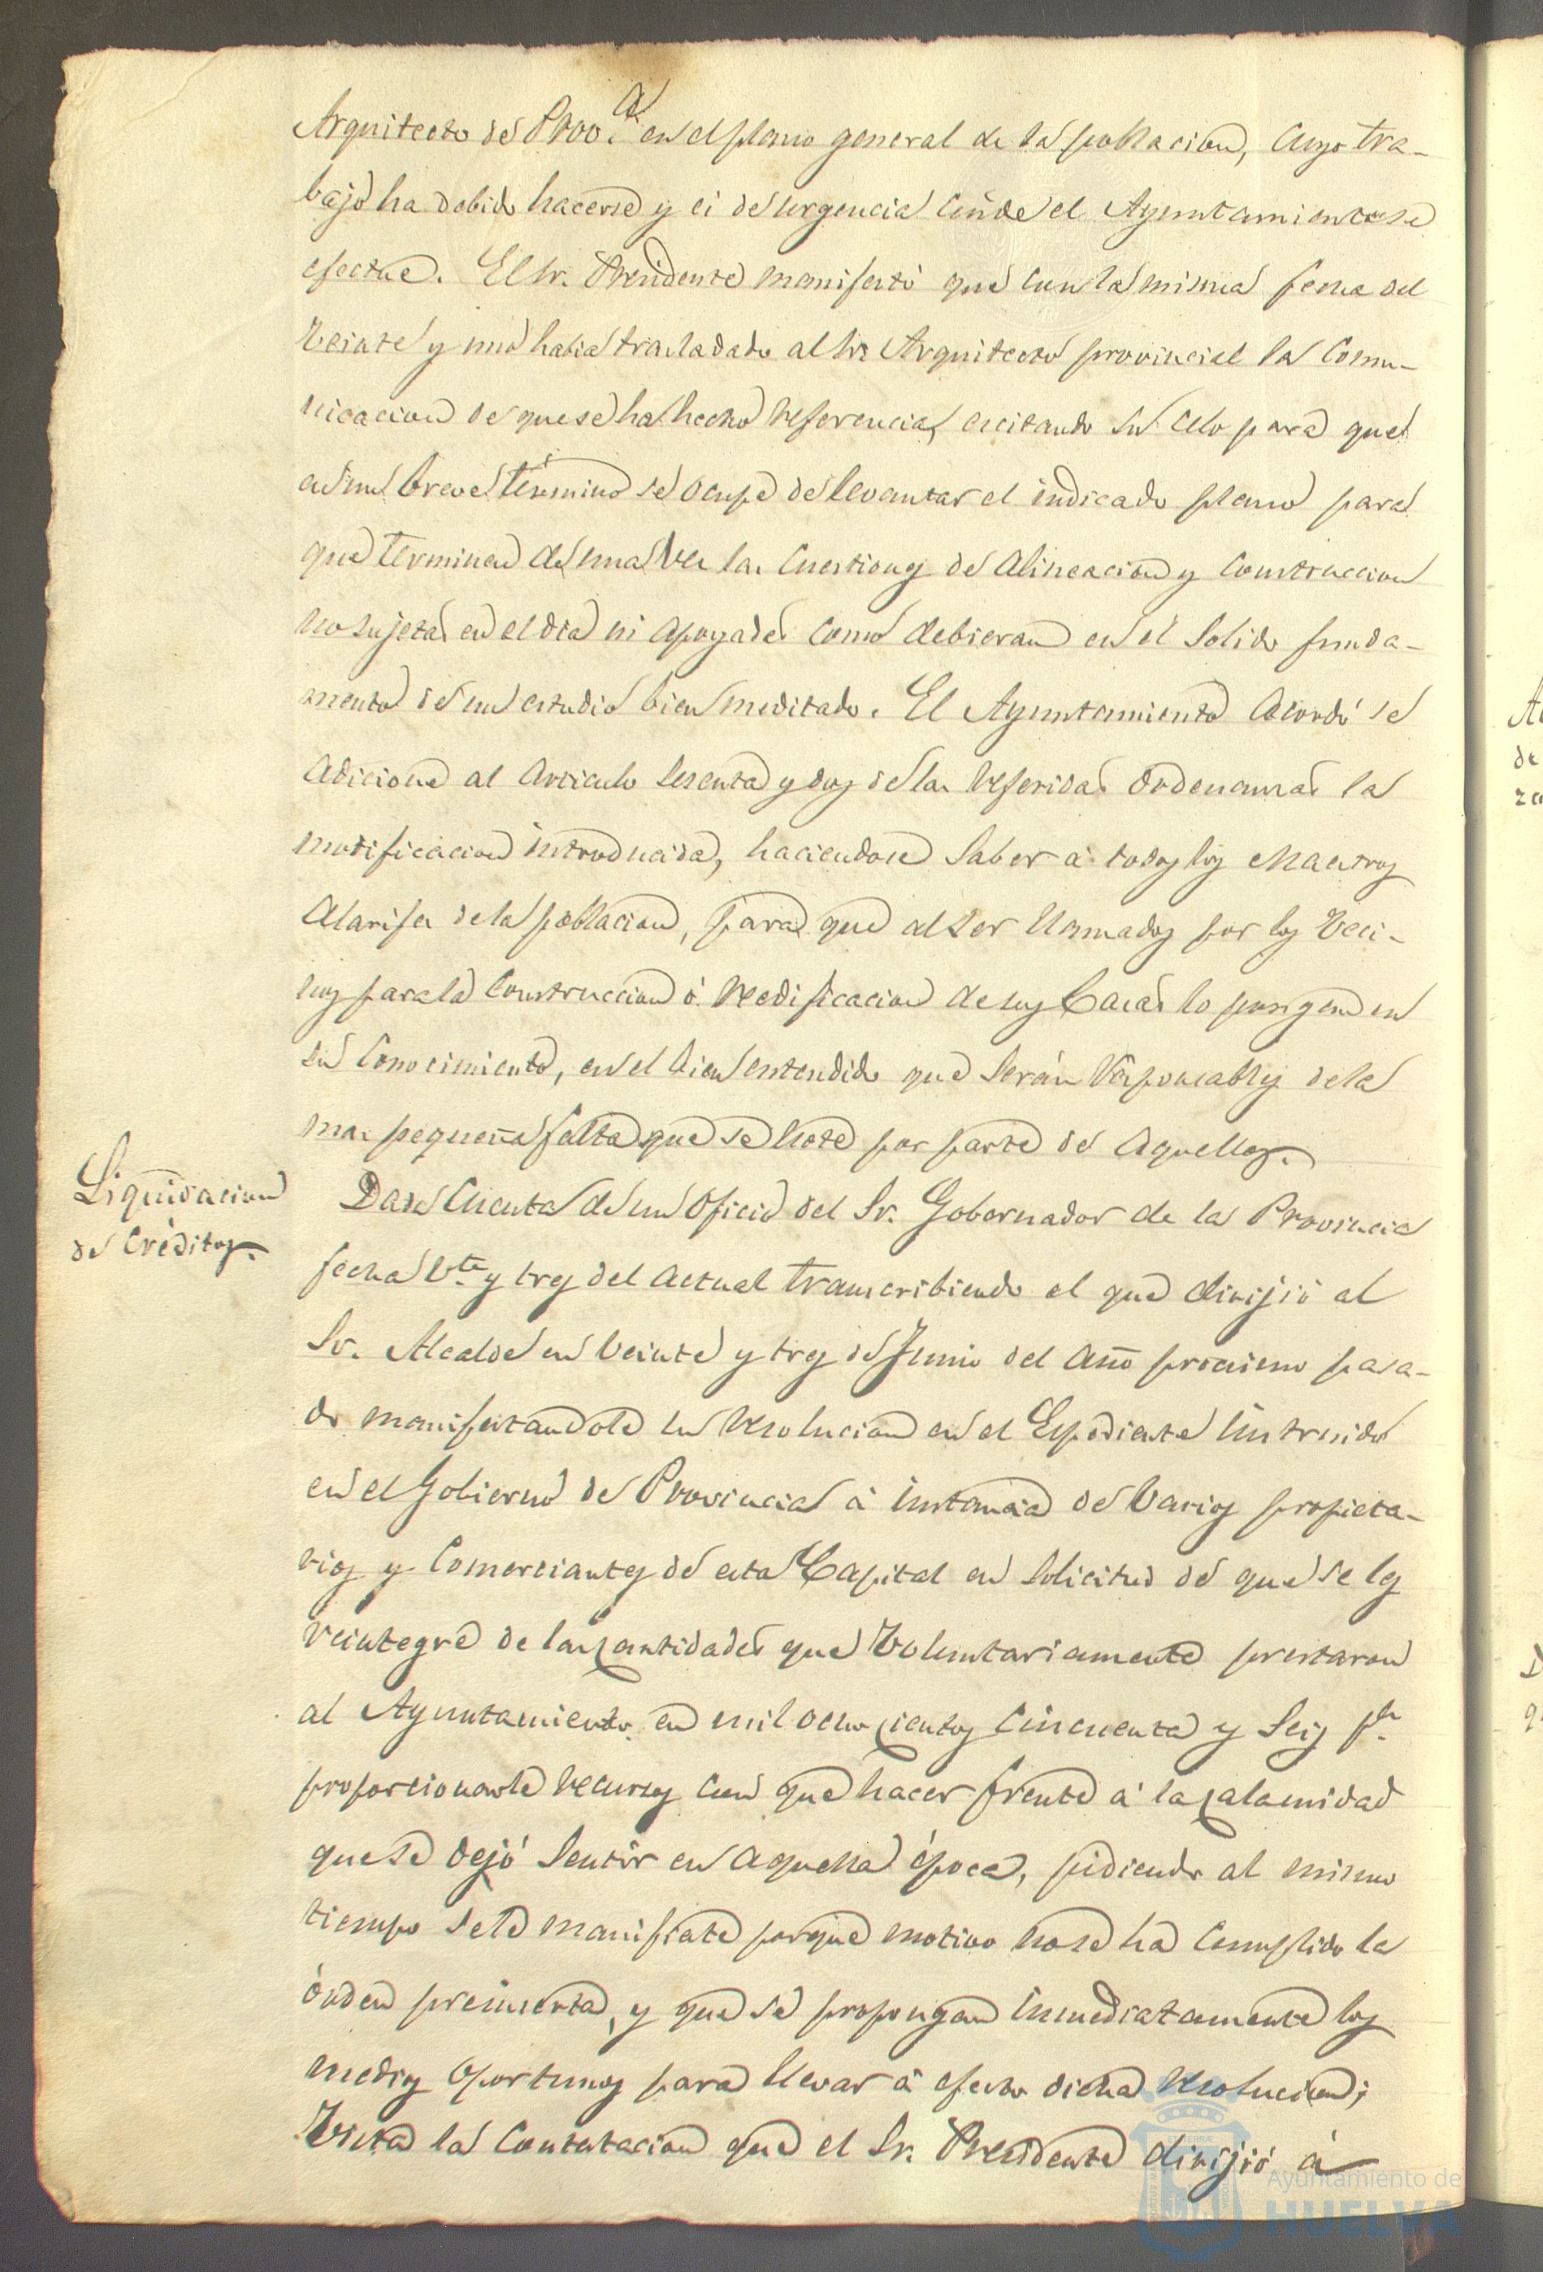 Arquitecto de Prov.ª en el plano general de la poblacion, cuyo tra-
bajo ha debido hacerse y ci de urgencia cuide el Ayuntamiento se
efectue. El Sr. Presidente manifestó que con la misma fecha del
veinte y uno habia trasladado al Sr Arquitecto provincial la comu-
nicacion de que se ha hecho referencia, escitando su celo para que
en un breve término se ocupe de levantar el indicado plano para
que terminen de una vez las cuestiones de alineacion y construccion
no sujetas en el dia ni apoyadas como debieran en el solido funda-
mento de un estudio bien meditado. El Ayuntamiento acordó se
adicione al articulo sesenta y dos de las referidas ordenanzas la
modificacion introducida, haciendose saber á todos los Maestros
Alarifes de la poblacion, para que al ser llamados por los veci-
nos para la construccion ó reedificacion de sus Casas lo pongan en
su conocimiento, en el bien entendido que serán responsables de la
mas pequeña falta que se note por parte de aquellos.
Liquidacion
de Créditos.
Dada cuenta de un oficio del Sr. Gobernador de la Provincia
fecha v.te y tres del actual transcribiendo el que dirijió al
Sr. Alcalde en veinte y tres de Junio del año procsimo pasa-
do manifestandole su resolucion en el Espediente instruido
en el Gobierno de Provincia á instancia de varios propieta-
rios y comerciantes de esta Capital en solicitud de que se les
reintegre de las cantidades que voluntariamente prestaron
al Ayuntamiento en mil ochocientos cincuenta y seis p.a
proporcionarle recursos con que hacer frente á la calamidad
que se dejó sentir en aquella época, pidiendo al mismo
tiempo se le manifieste porque motivo no se ha cumplido la
órden preinserta, y que se propongan inmediatamente los
medios oportunos para llevar á efecto dicha resolucion;
Vista la contestacion que el Sr. Presidente dirijió á
Ayuntamiento de
HUELVA